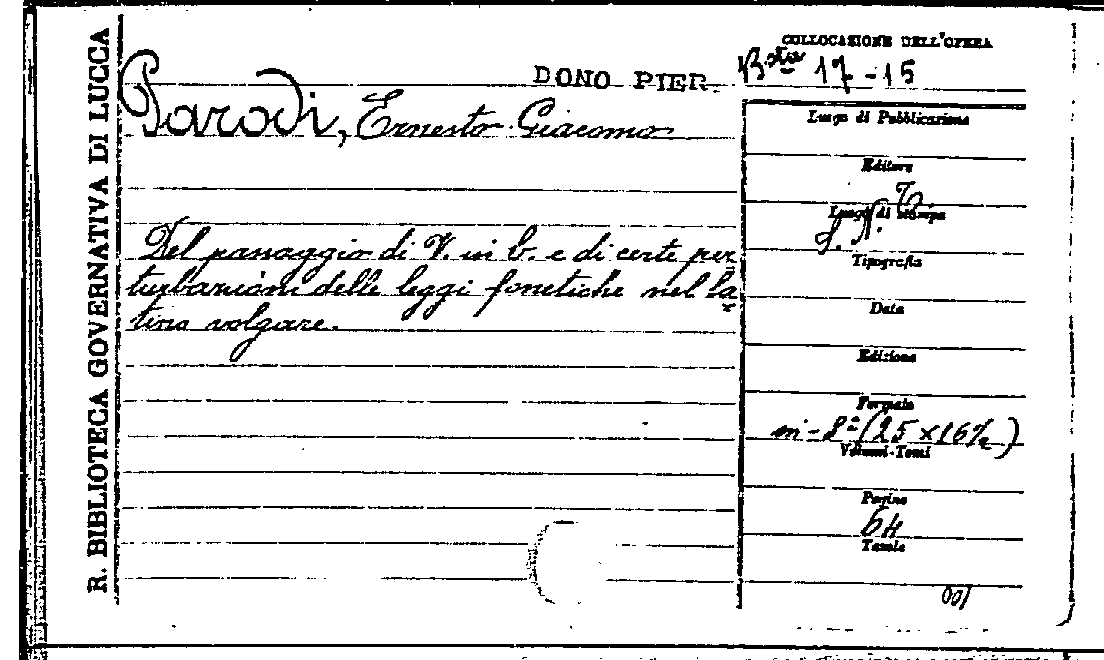 R. BIBLIOTECA GOVERNATIVA DI LUCCA
COLLOCAZIONE DELL'OPERA
DONO PIER.
B.sta 17-15
Parodi, Ernesto Giacomo
Del passaggio di V. in b. e di certe per
turbazioni delle leggi fonetiche nel la
tino volgare.
Luogo di Pubblicazione
Editore
Luogo di stampa
S. N. T.
Tipografia
Data
Edizione
Formato
in-8º (25 x 16½)
Volumi-Tomi
Pagine
64
Tavole